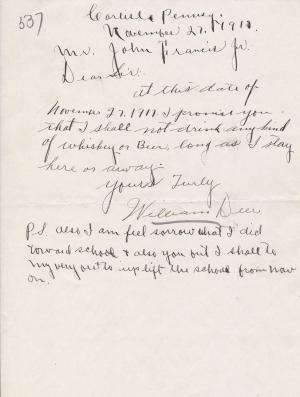 537
Carlisle Penney.
November 27, 1917.
Mr. John Francis Jr.
Dear Sir.
at this date of
November 27, 1917. I promise you
that I shall not drink any kind
of whiskey or Beer, long as I stay
here or away.
Yours Turly
William Deer
P.S. also I am feel sorrow what I did
toward school & also you out I shall to
my very out to up lift the school from now
on.